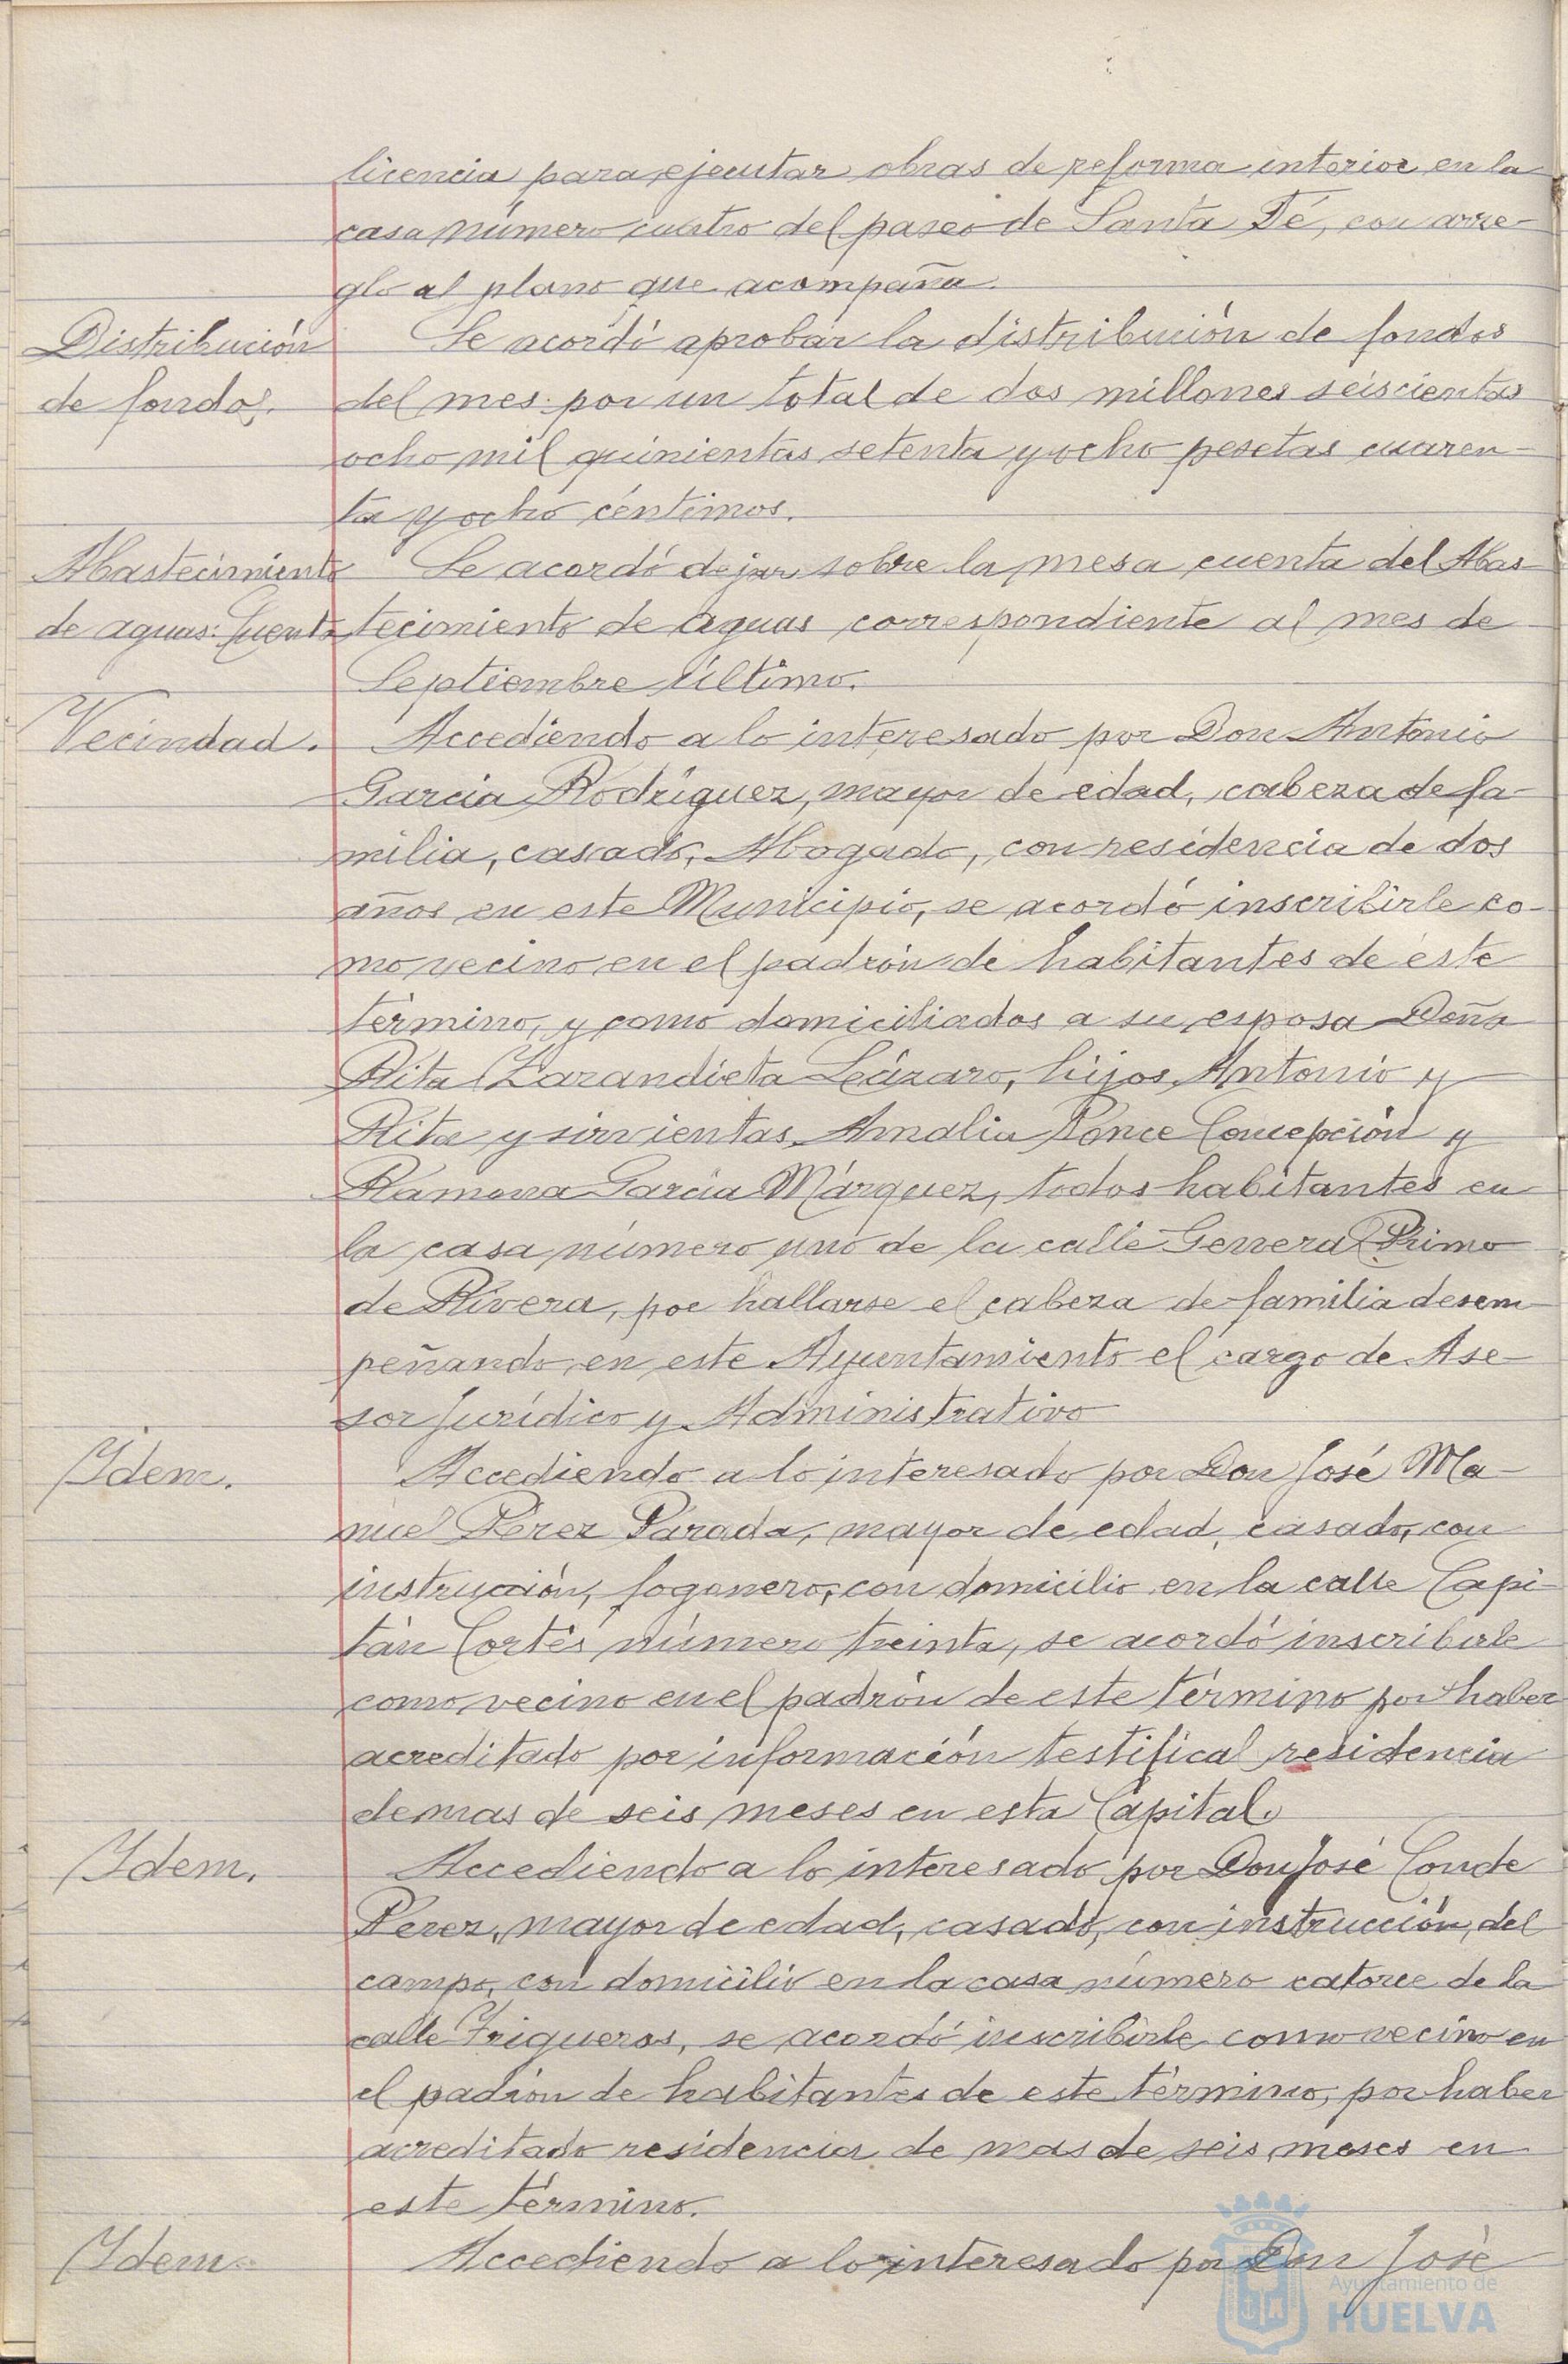 licencia para ejecutar obras de reforma interior en la
casa número cuatro del paseo de Santa Fé, con arre-
glo al plano que acompaña.
Distribución
de fondos.
Se acordó aprobar la distribución de fondos
del mes por un total de dos millones seiscientas
ocho mil quinientas setenta y ocho pesetas cuaren-
ta y ocho céntimos.
Abastecimiento
de aguas: Cuenta
Se acordó dejar sobre la mesa cuenta del Abas-
tecimiento de aguas correspondiente al mes de
Septiembre último.
Vecindad.
Accediendo a lo interesado por Don Antonio
García Rodríguez, mayor de edad, cabeza de fa-
milia, casado, Abogado, con residencia de dos
años en este Municipio, se acordó inscribirle co-
mo vecino en el padrón de habitantes de este
término, y como domiciliados a su esposa Doña
Rita Zarandieta Leázaro, hijos Antonio y
Rita y sirvientas Amalia Ponce Concepción y
Ramona García Márquez, todos habitantes en
la casa número uno de la calle General Primo
de Rivera, por hallarse el cabeza de familia desem-
peñando en este Ayuntamiento el cargo de Ase-
sor Jurídico y Administrativo
Idem.
Accediendo a lo interesado por Don José Ma-
nuel Pérez Parada, mayor de edad, casado, con
instrucción, fogonero, con domicilio en la calle Capi-
tán Cortés número treinta, se acordó inscribirle
como vecino en el padrón de este término por haber
acreditado por información testifical residencia
de mas de seis meses en esta Capital.
Idem.
Accediendo a lo interesado por Don José Conde
Perez, mayor de edad, casado, con instrucción, del
campo, con domicilio en la casa número catorce de la
calle Trigueros, se acordó inscribirle como vecino en
el padrón de habitantes de este término, por haber
acreditado residencia de mas de seis meses en
este término.
Idem.
Accediendo a lo interesado por Don José
Ayuntamiento de
HUELVA